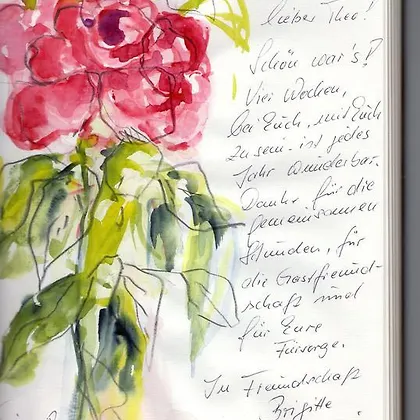 lieber Theo!
Schön war's!
Vier Wochen,
bei Euch, mit Euch
zu sein - ist jedes
Jahr wunderbar.
Danke für die
gemeinsamen
Stunden, für
die Gastfreund-
schaft und
für Eure
Fürsorge.
In Freundschaft
Brigitte